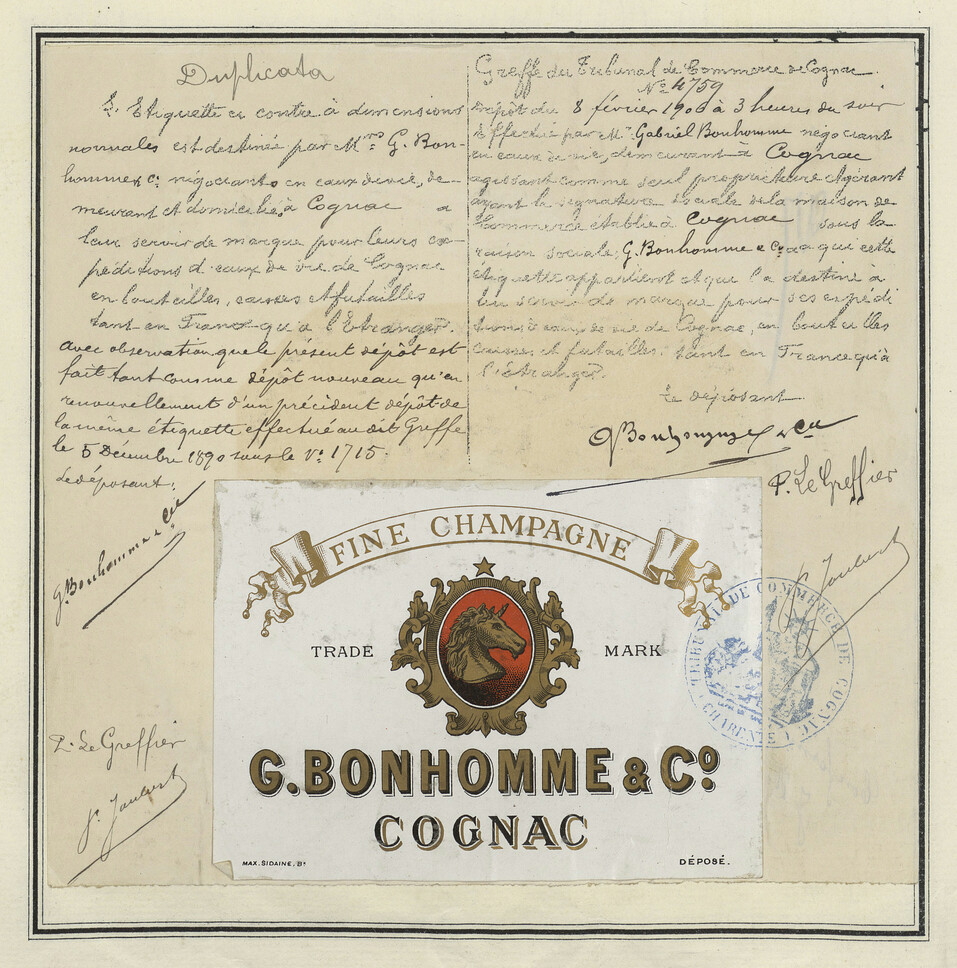 Duplicata
L'Etiquette ci contre à dimensions
normales est destinée par Mrs G. Bon-
homme & Co négociants en eaux de vie, de-
meurant et domiciliés à Cognac a
leur servir de marque pour leurs ex-
péditions d'eaux de vie de Cognac
en bouteilles, caisses et futailles
tant en France qu'à l'Etranger.
avec observation que le présent dépôt est
fait tant comme dépôt nouveau qu'en
renouvellement d'un précédent dépôt de
la même étiquette effectué au dit Greffe
le 5 Décembre 1890 sous le No 1715.
Le déposant:
G. Bonhomme & Cie
P. Le Greffier
P. Joubert
Greffe du Tribunal de Commerce de Cognac
No 4759
Dépôt du 8 février 1906 à 3 heures du soir
Effectué par Mr Gabriel Bonhomme négociant
en eaux de vie, demeurant à Cognac
agissant comme seul propriétaire et gérant
ayant la signature sociale de la maison de
Commerce établie à Cognac sous la
raison sociale; G. Bonhomme & Co à qui cette
étiquette appartient et qui l'a destiné à
lui servir de marque pour ses expédi
tions d'eaux de vie de Cognac, en bouteilles
caisses et futailles tant en France qu'à
l'étranger.
Le déposant
G Bonhomme & Cie
P. Le Greffier
P. Joubert
FINE CHAMPAGNE
TRADE MARK
G. BONHOMME & Co
COGNAC
MAX. SIDAINE, Bx
DÉPOSÉ.
TRIBUNAL DE COMMERCE DE COGNAC
(CHARENTE)